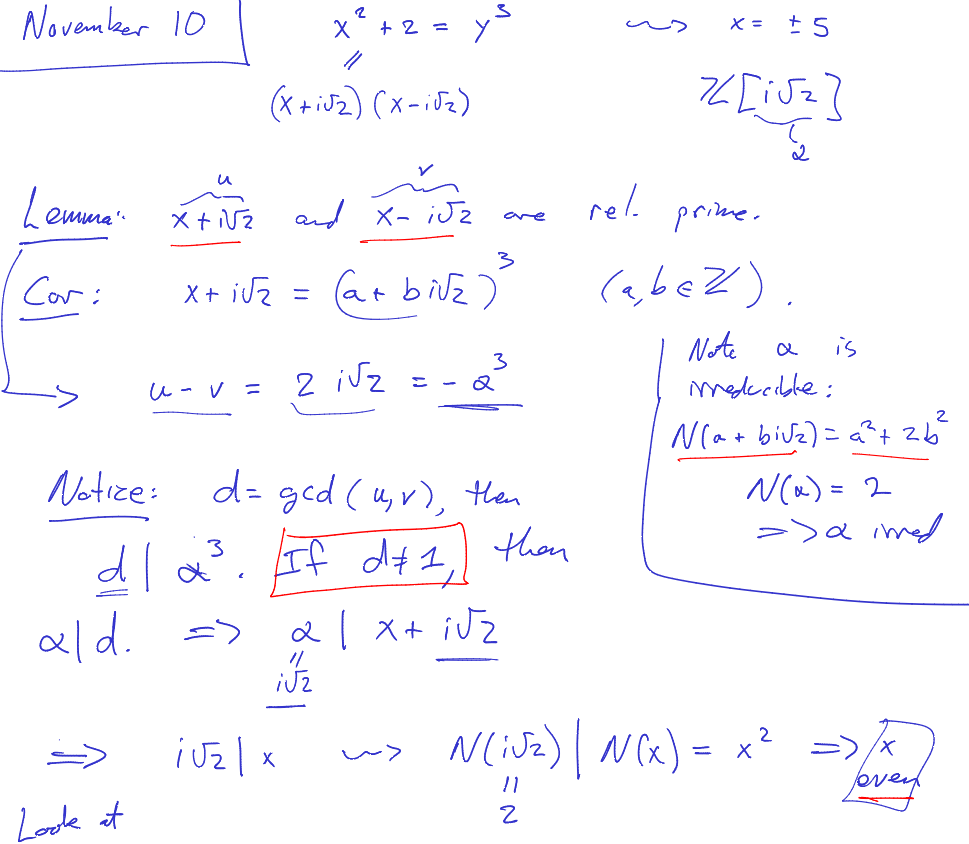 November 10
x² + 2 = y³ ⇝ x = ± 5
(x+i√2)(x-i√2)
ℤ[i√2]
α
u v
Lemma: x+i√2 and x-i√2 are rel. prime.
Cor: x+i√2 = (a + bi√2)³ (a,b ∈ ℤ).
u - v = 2 i√2 = -α³
Note α is
irreducible:
N(a + bi√2) = a² + 2b²
N(α) = 2
=> α irred
Notice: d = gcd(u,v), then
d | α³. If d ≠ 1, then
α | d. => α | x + i√2
"
i√2
=> i√2 | x ⇝ N(i√2) | N(x) = x² => x
even
"
2
Look at